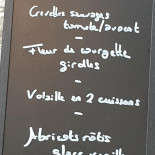 Crevettes sauvages
tomate/avocat
-
Fleur de courgette
girolles
-
Volaille en 2 cuissons
-
Abricots rôtis
glace vanille